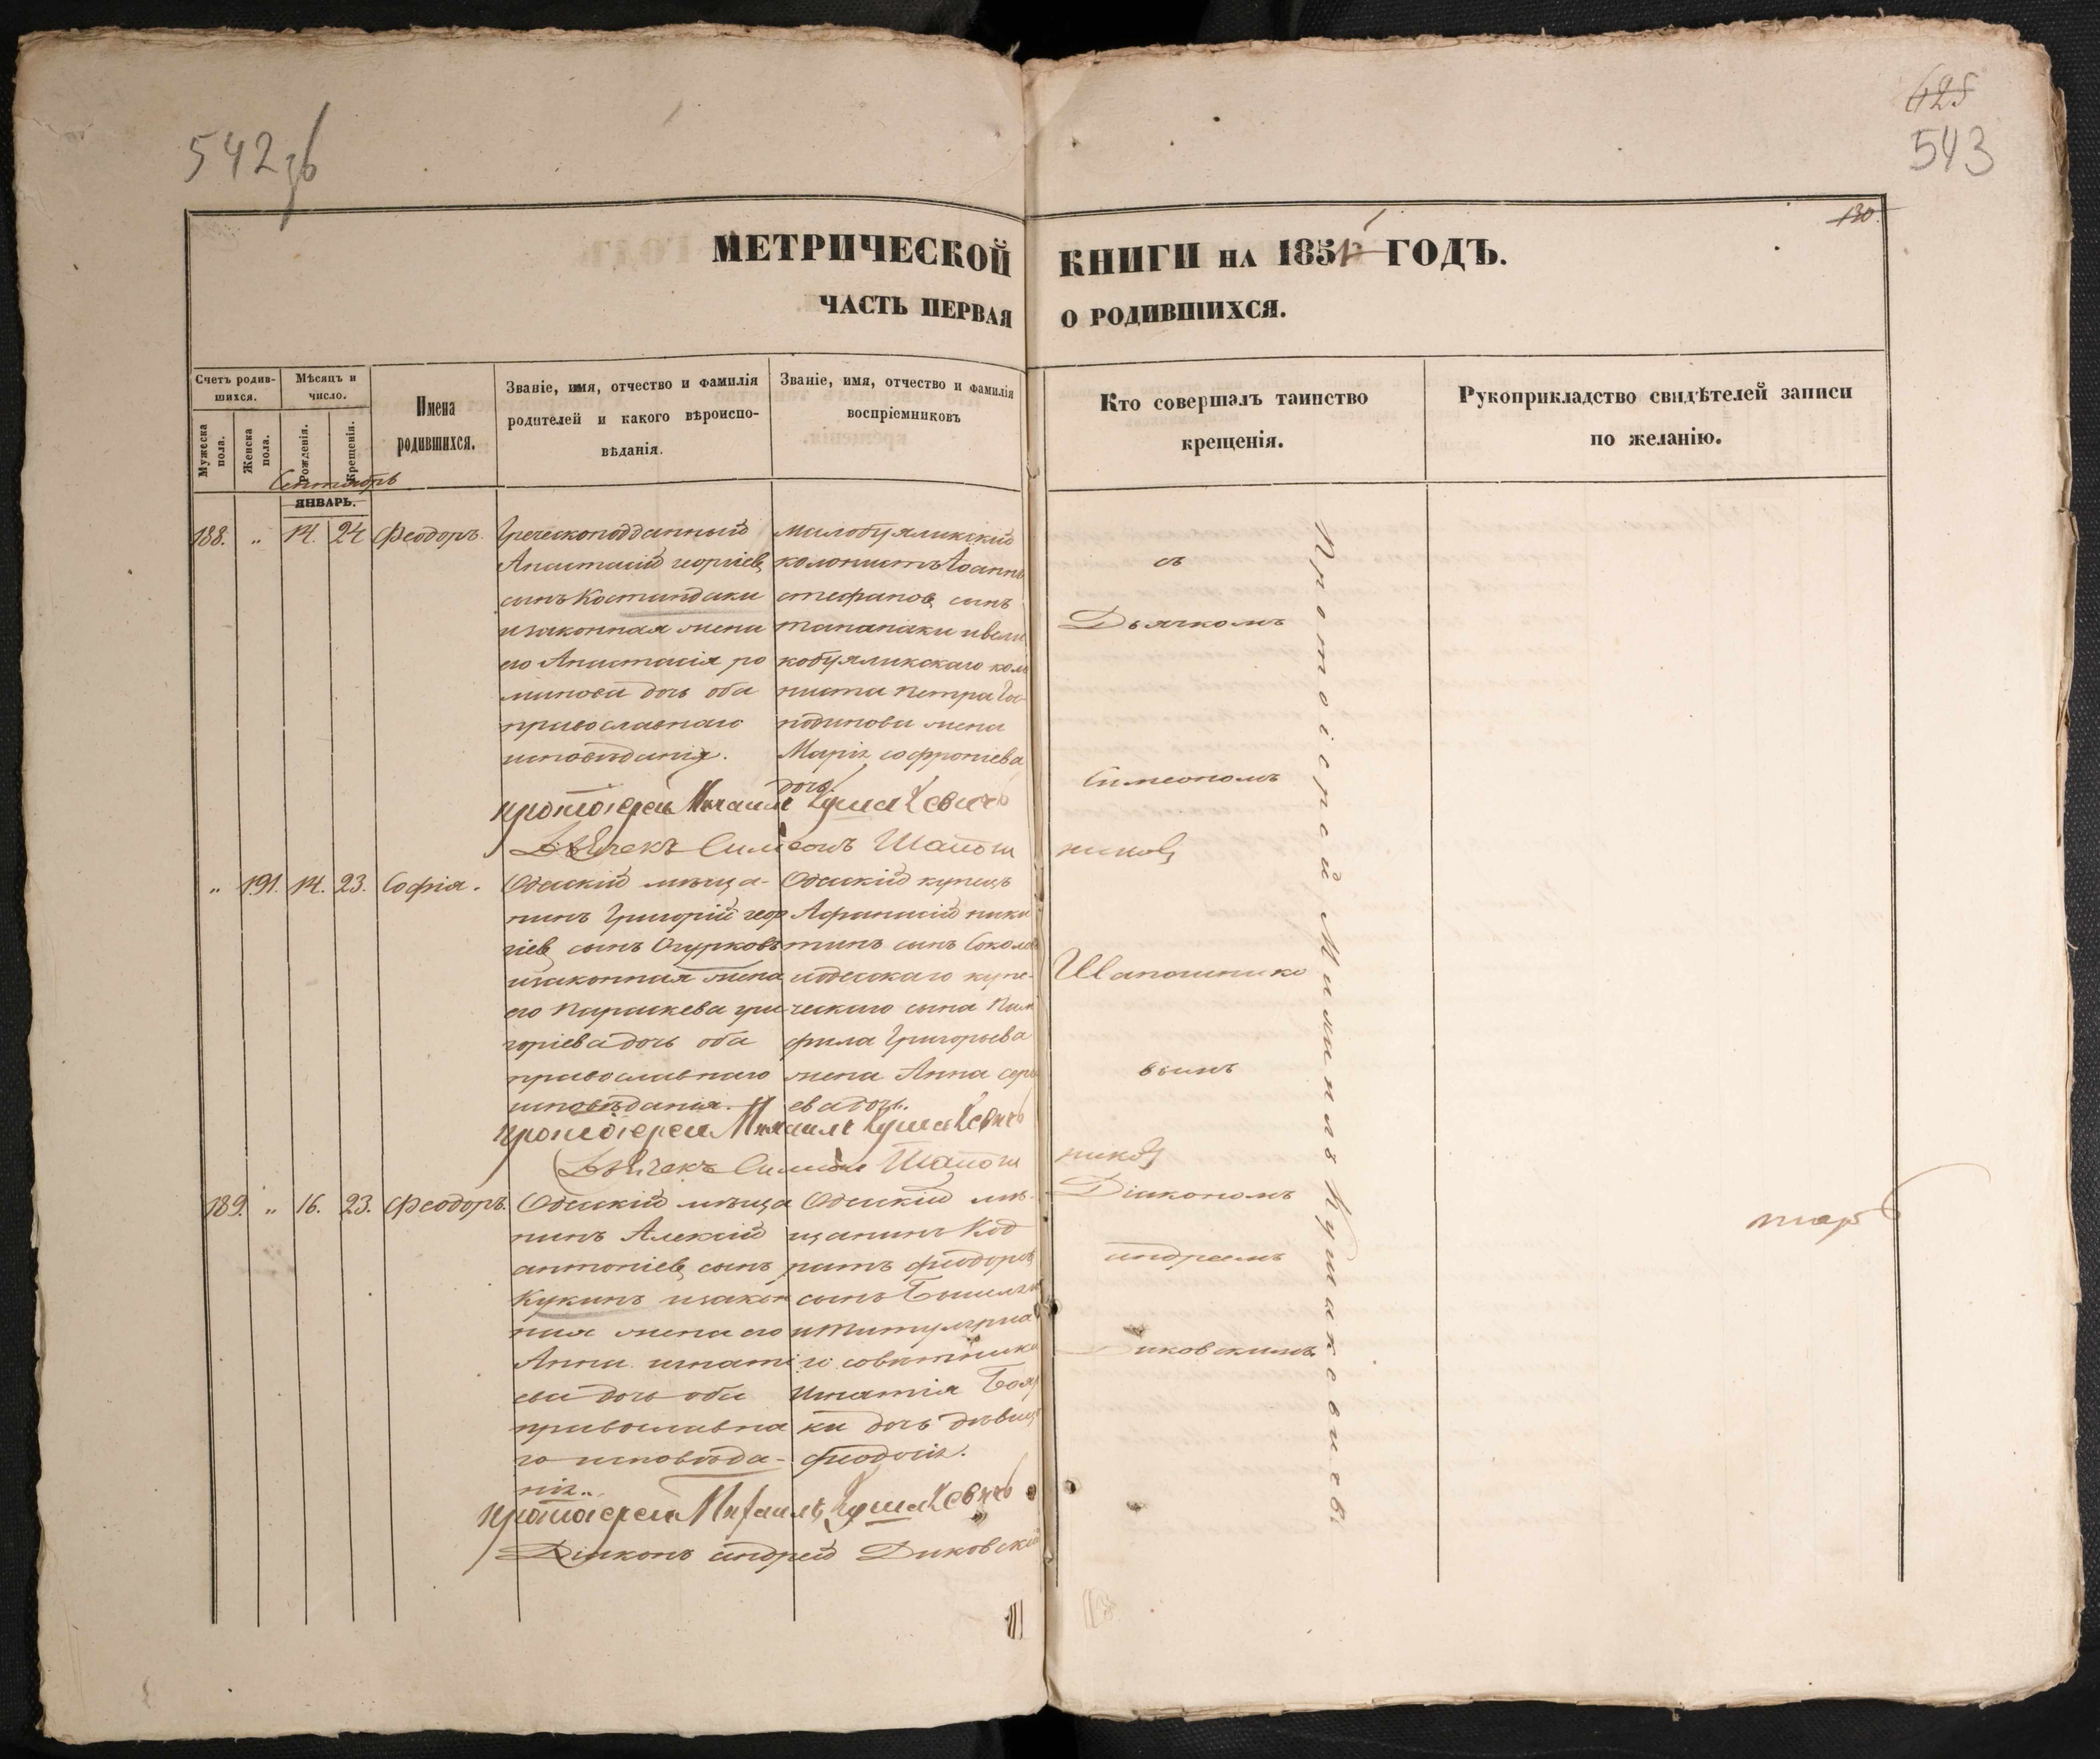 542 зв
625
543
130.
МЕТРИЧЕСКОЙ КНИГИ НА 1851 ГОДЪ.
ЧАСТЬ ПЕРВАЯ О РОДИВШИХСЯ.
Счетъ родив-
шихся.
Мужеска пола.
Женска пола.
Мѣсяцъ и
число.
Рожденія.
Крещенія.
Имена
родившихся.
Званіе, имя, отчество и фамилія
родителей и какого вѣроиспо-
вѣданія.
Званіе, имя, отчество и фамилія
воспріемниковъ
Кто совершалъ таинство
крещенія.
Рукоприкладство свидѣтелей записи
по желанію.
Сентябрь
ЯНВАРЬ.
188. „ 14. 24 Феодоръ.
Греческоподданный
Анастасій георгіевъ
сынъ Костандаки
и законная жена
его Анастасія ро
манова дочь оба
православнаго
исповѣданія.
Малобуяликскій
колонистъ Іоаннъ
стефановъ сынъ
кобуяликскаго коло
ниста Петра Гос
подинова жена
Марія софроніева
дочь.
Протоіерей Михаилъ Кушакевичъ
Дьячекъ Симеонъ Шапошниковъ
„ 191. 14. 23. Софія.
Одесскій мѣща-
нинъ Григорій геор
гіевъ сынъ Огурковъ
и законная жена
его Параскева гри
горіева дочь оба
православнаго
исповѣданія.
Одесскій купецъ
Афанасій ники
тинъ сынъ Соколов
и одесскаго купе-
ческаго сына Пам
фила Григорьева
жена Анна серг
ева дочь.
Протоіерей Михаилъ Кушакевичъ
Дьячекъ Симеонъ Шапошниковъ
189. „ 16. 23. Феодоръ.
Одесскій мѣща
нинъ Алексій
антоніевъ сынъ
Кукинъ и закон
ная жена его
Анна игнатіе
ва дочь оба
православна
го исповѣда-
нія.
Одесскій мѣ-
щанинъ Код
ратъ феодоровъ
сынъ
и титулярна
го совѣтника
Игнатія
ки дочь дѣвица
феодосія.
Протоіерей Михаилъ Кушакевичъ
Діаконъ андрей Диковскій
Протоіерей Михаилъ Кушакевичъ
съ
Дьячкомъ
Симеономъ
Шапошнико
вымъ
Діакономъ
андреемъ
Диковскимъ